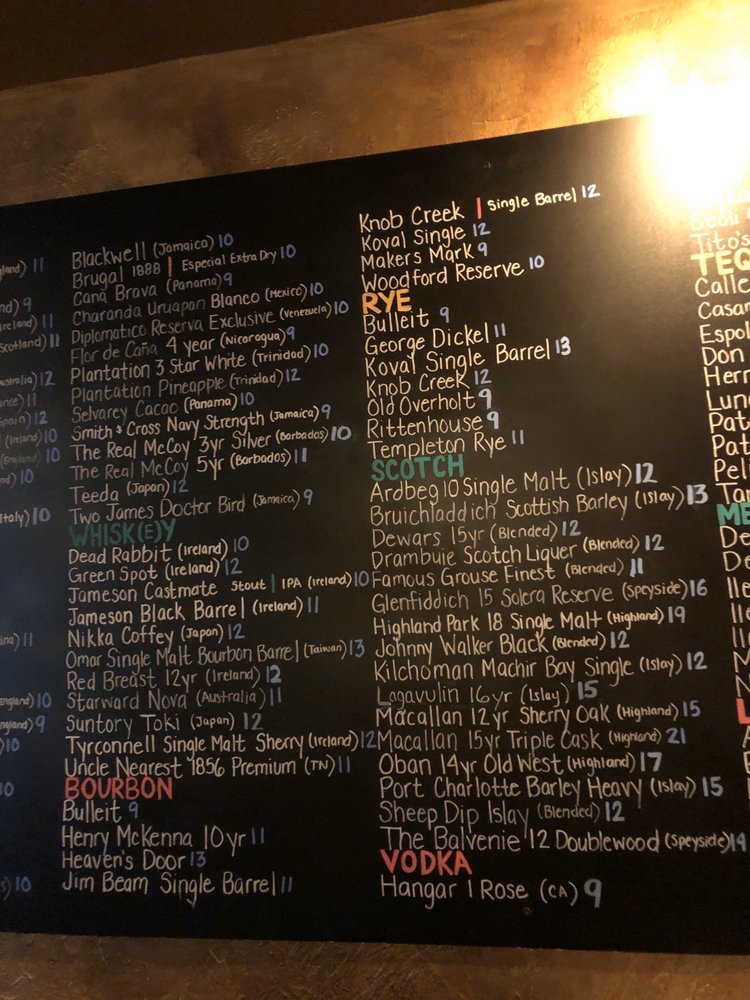 gland) 11
nd) 9
reland) 11
Scotland) 11
ustralia) 12
ance) 11
Spain) 12
(Ireland) 10
(England) 10
nd) 10
Italy) 10
ina) 11
England) 10
ngland) 9
) 10
10
s) 10
Blackwell (Jamaica) 10
Brugal 1888 | Especial Extra Dry 10
Cana Brava (Panama) 9
Charanda Uruapan Blanco (Mexico) 10
Diplomatico Reserva Exclusive (Venezuela) 10
Flor de Caña 4 year (Nicaragua) 9
Plantation 3 Star White (Trinidad) 10
Plantation Pineapple (Trinidad) 12
Selvarey Cacao (Panama) 10
Smith & Cross Navy Strength (Jamaica) 9
The Real McCoy 3yr Silver (Barbados) 10
The Real McCoy 5yr (Barbados) 11
Teeda (Japan) 12
Two James Doctor Bird (Jamaica) 9
WHISK(E)Y
Dead Rabbit (Ireland) 10
Green Spot (Ireland) 12
Jameson Castmate Stout | IPA (Ireland) 10
Jameson Black Barrel (Ireland) 11
Nikka Coffey (Japan) 12
Omar Single Malt Bourbon Barrel (Taiwan) 13
Red Breast 12yr (Ireland) 12
Starward Nova (Australia) 11
Suntory Toki (Japan) 12
Tyrconnell Single Malt Sherry (Ireland) 12
Uncle Nearest 1856 Premium (TN) 11
BOURBON
Bulleit 9
Henry McKenna 10yr 11
Heaven's Door 13
Jim Beam Single Barrel 11
Knob Creek | Single Barrel 12
Koval Single 12
Makers Mark 9
Woodford Reserve 10
RYE
Bulleit 9
George Dickel 11
Koval Single Barrel 13
Knob Creek 12
Old Overholt 9
Rittenhouse 9
Templeton Rye 11
SCOTCH
Ardbeg 10 Single Malt (Islay) 12
Bruichladdich Scottish Barley (Islay) 13
Dewars 15yr (Blended) 12
Drambuie Scotch Liquer (Blended) 12
Famous Grouse Finest (Blended) 11
Glenfiddich 15 Solera Reserve (Speyside) 16
Highland Park 18 Single Malt (Highland) 19
Johnny Walker Black (Blended) 12
Kilchoman Machir Bay Single (Islay) 12
Lagavulin 16yr (Islay) 15
Macallan 12yr Sherry Oak (Highland) 15
Macallan 15yr Triple Cask (Highland) 21
Oban 14yr Old West (Highland) 17
Port Charlotte Barley Heavy (Islay) 15
Sheep Dip Islay (Blended) 12
The Balvenie 12 Doublewood (Speyside) 14
VODKA
Hangar 1 Rose (CA) 9
Stoli
Tito's
TEQ
Calle
Casar
Espol
Don
Herr
Lun
Pat
Pat
Pel
Tar
ME
De
De
Ile